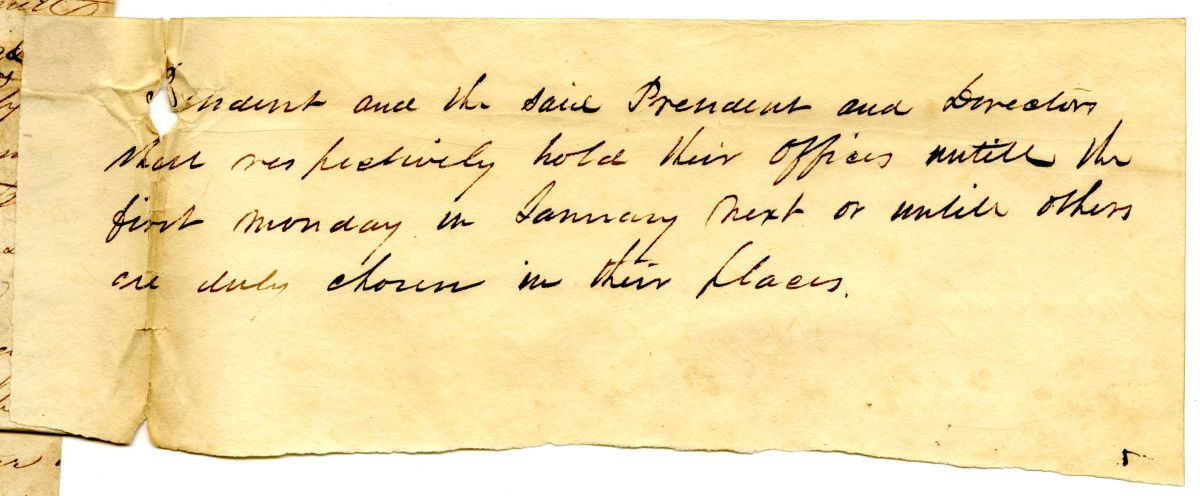 President and the said President and Directors
shall respectively hold their offices untill the
first monday in January next or untill others
are duly chosen in their places.
5